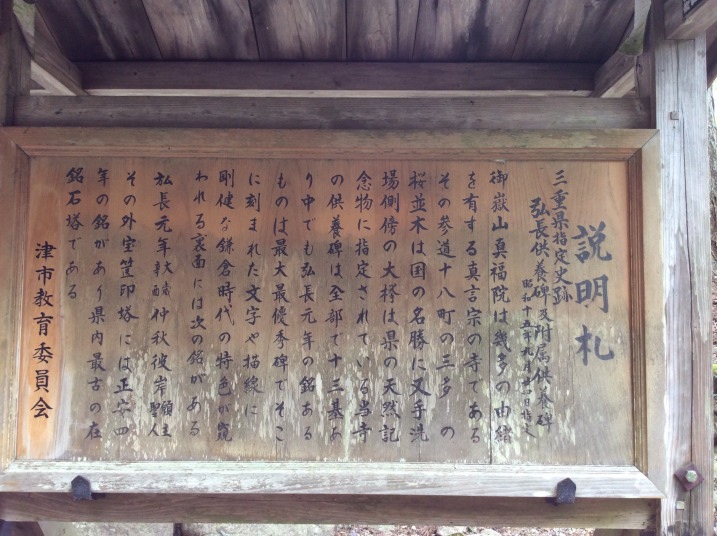 説明札
三重県指定史跡
弘長供養碑及附属供養碑
昭和十五年九月廿四日指定
御嶽山真福院は幾多の由緒
を有する真言宗の寺である
その参道十八町の三多の
桜並木は国の名勝に又手洗
場側傍の大欅は県の天然記
念物に指定されている当寺
の供養碑は全部で十三基あ
り中でも弘長元年の銘ある
ものは最大最優秀碑でそこ
に刻まれた文字や描線に
剛健な鎌倉時代の特色が窺
われる裏面には次の銘がある
弘長元年 仲秋彼岸 願主 聖人
その外宝篋印塔には正安四
年の銘があり県内最古の在
銘石塔である
津市教育委員会